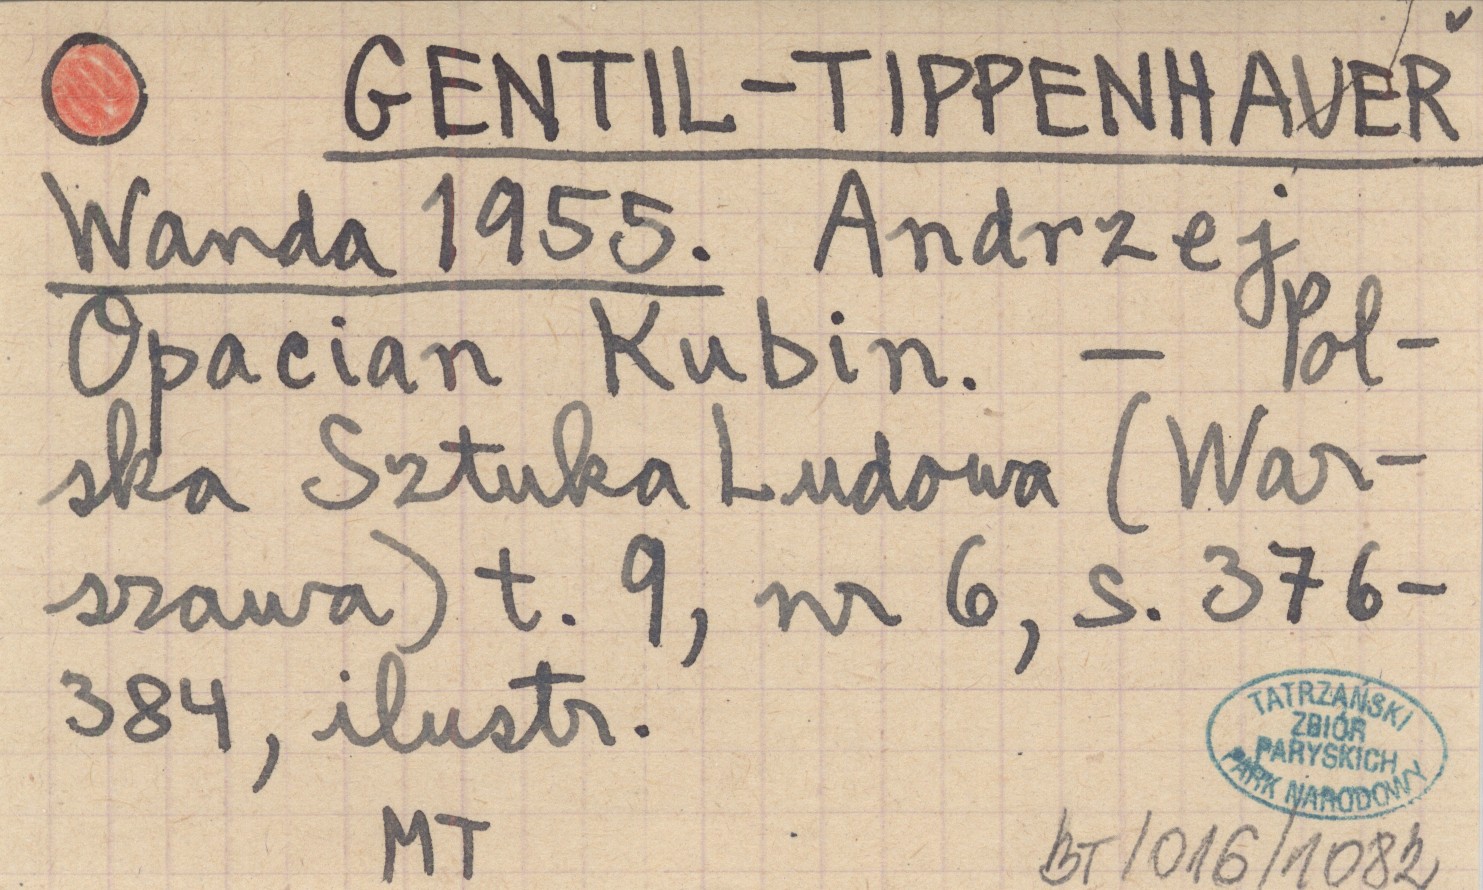 GENTIL-TIPPENHAUER
Wanda 1955. Andrzej
Opacian Kubin. — Pol-
ska Sztuka Ludowa (War-
szawa) t. 9, nr 6, s. 376-
384, ilustr.
MT
TATRZAŃSKI
ZBIÓR
PARYSKICH
PARK NARODOWY
BT/016/1082